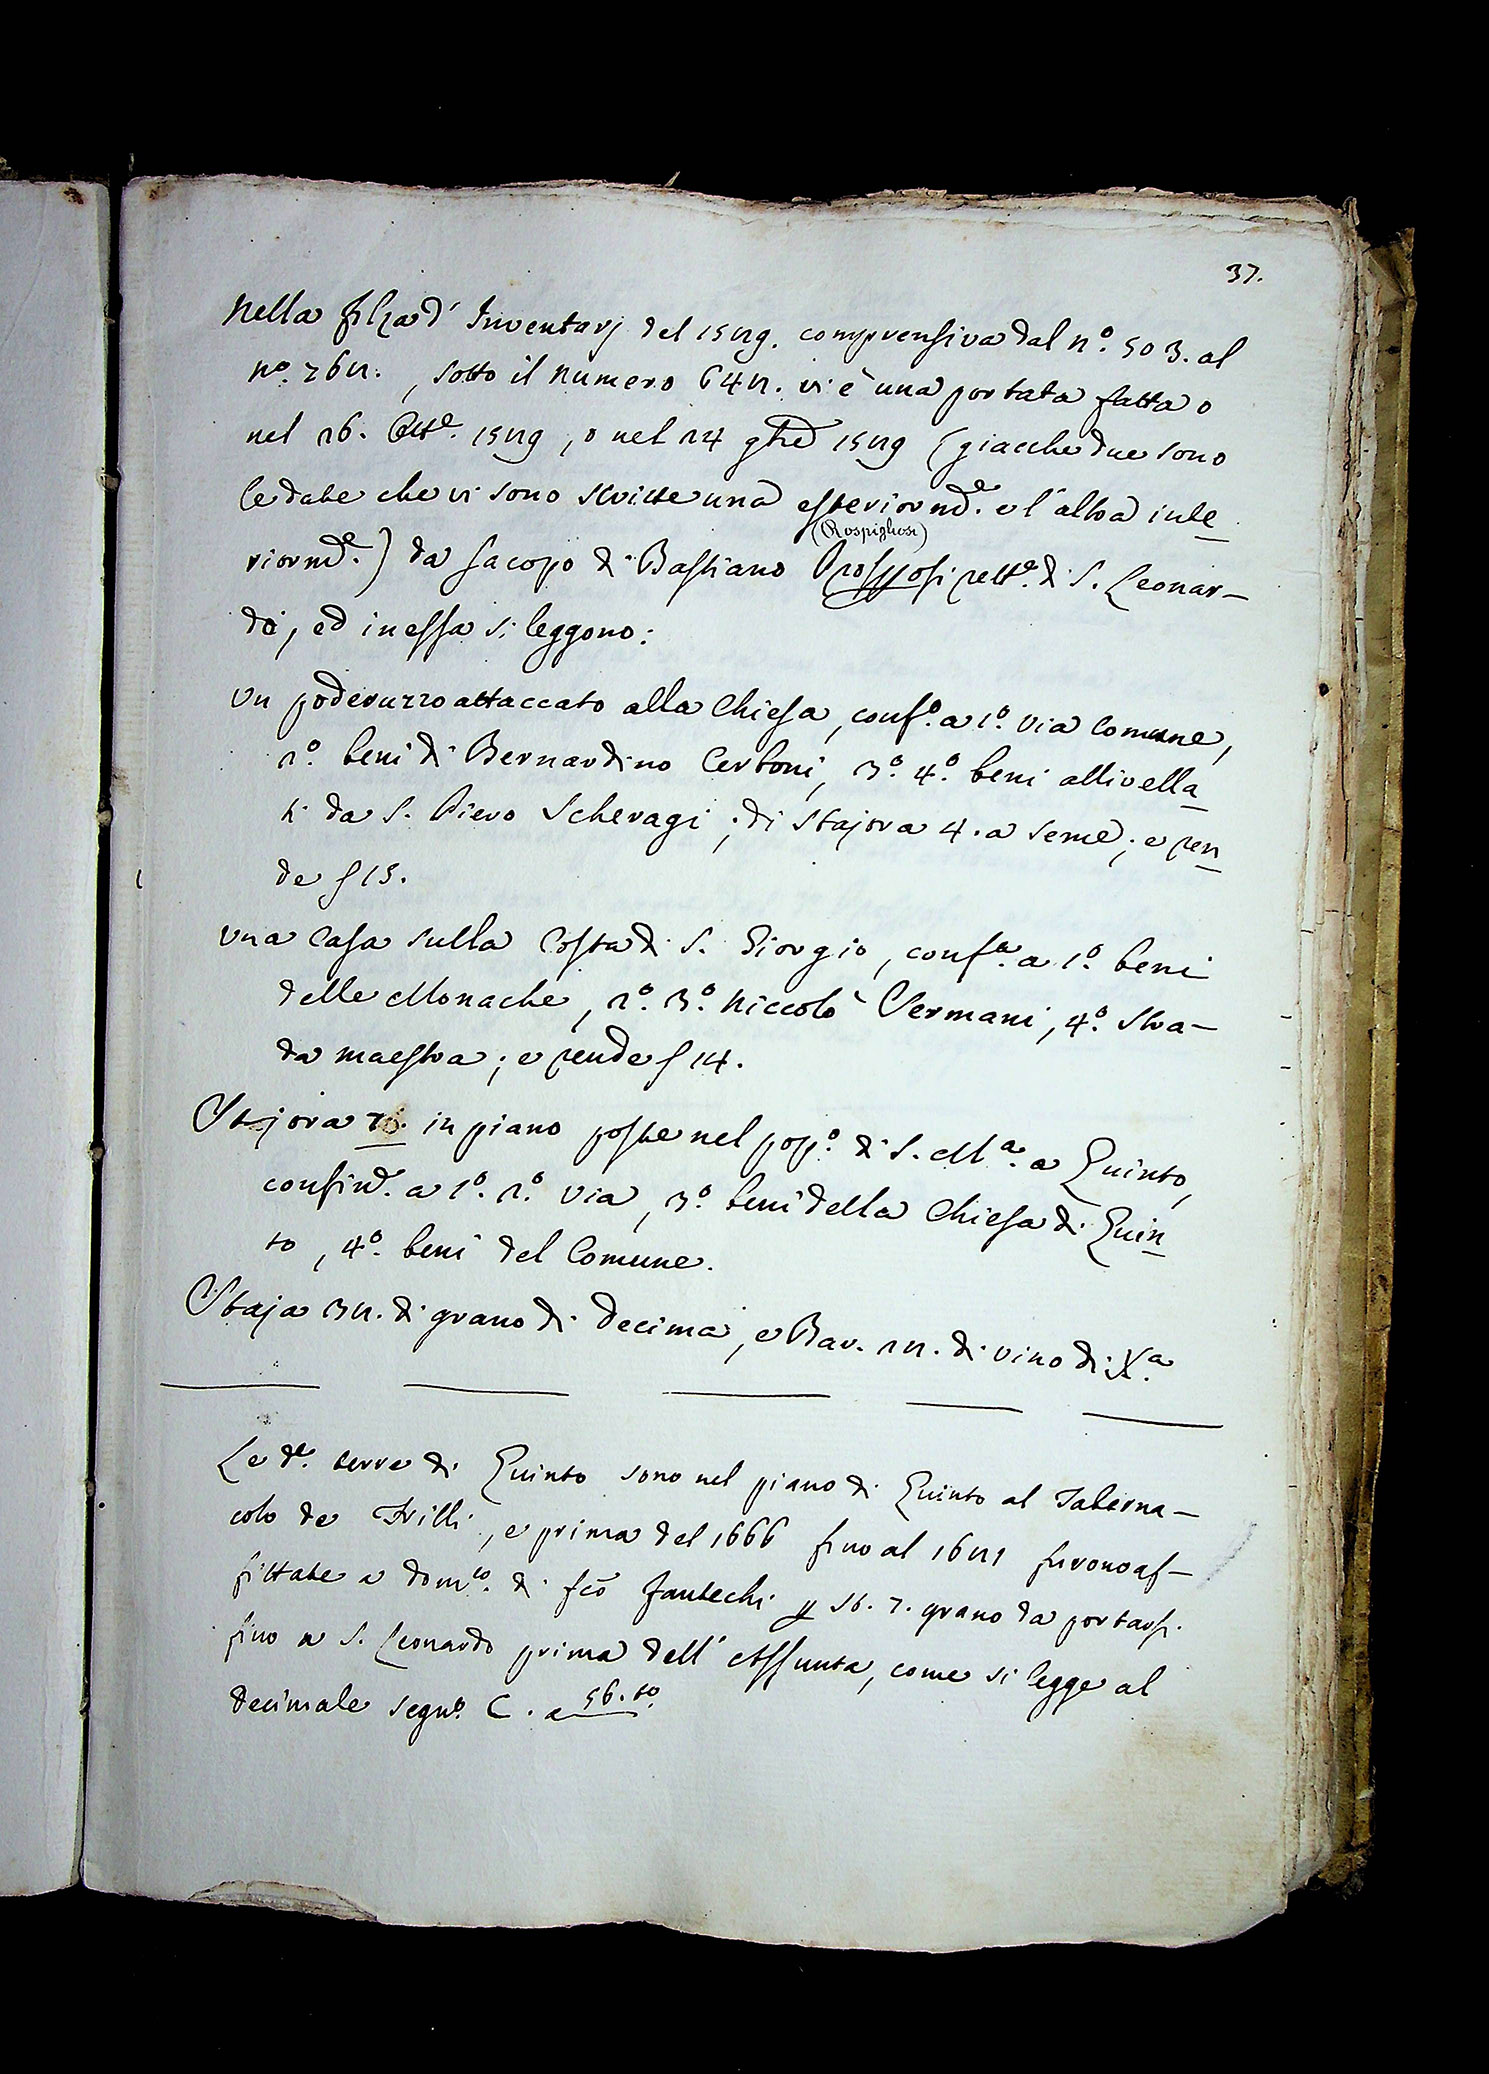 37.
Nella filza d' Inventarj del 1589. comprensiva dal n.º 503. al
n.º 768. , sotto il numero 648. vi è una portata fatta o
nel 26. Ott.e 1589, o nel 24 9bre 1589 (giacche due sono
le date che vi sono scritte una esteriorm.e e l'altra inte
(Rospigliosi)
riorm.e) da Jacopo di Bastiano Prosposi rett.e di S. Leonar-
do, ed in essa si leggono:
Un poderuzzo attaccato alla Chiesa, conf.o a 1.º via Comune,
2.º beni di Bernardino Cerboni, 3.º 4.º beni allivella
ti da S. Piero Scheragi; di stajora 4. a seme; e ren
de f 15.
Una Casa sulla Costa di S. Giorgio, conf.a a 1.º beni
delle Monache, 2.º 3.º Niccolò Vermani, 4.º stra-
da maestra; e rende f 14.
Stajora 7 in piano poste nel pop.o di S. M.a a Quinto,
confin.e a 1.º 2.º via, 3.º beni della Chiesa di Quin
to, 4.º beni del Comune.
Staja 38. di grano di decima, e Bar. 28. di vino di X.a
Le d.e terre di Quinto sono nel piano di Quinto al Taberna-
colo de Frilli, e prima del 1666 fino al 1681 furono af-
fittate a Dom.co di Fco Fantechi p St. 7. grano da portarsi
fino a S. Leonardo prima dell' Assunta, come si legge al
decimale segn.o C. a 56. to